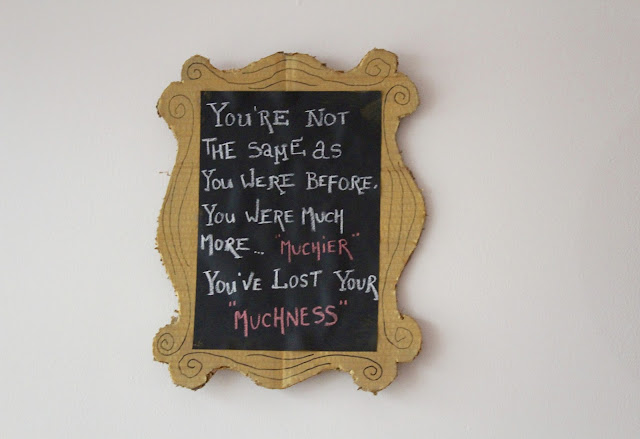 You're not
the same as
you were before.
You were much
more... "muchier"
You've lost your
"muchness"